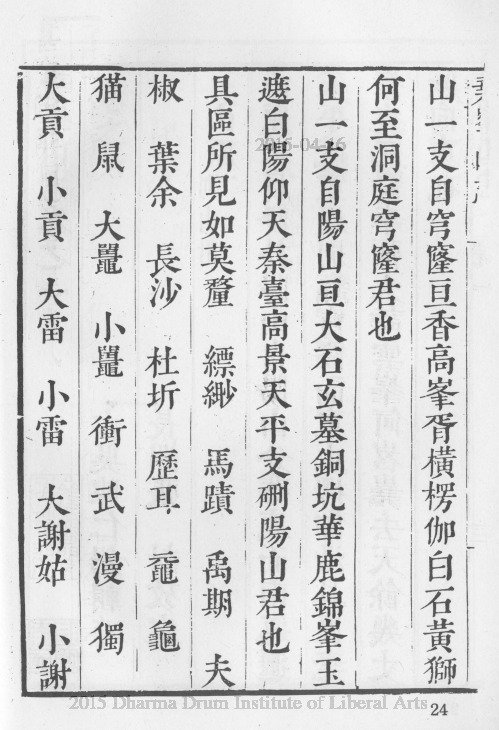 山一支自穹窿亘香高峯胥橫楞伽白石黃獅
何至洞庭穹窿君也
山一支自陽山亘大石玄墓銅坑華鹿錦峯玉
遮白陽仰天秦臺高景天平支硎陽山君也
具區所見如莫釐 縹緲 馬蹟 禹期 夫
椒 葉余 長沙 杜圻 歷耳 黿 龜
猫 鼠 大鼉 小鼉 衝 武 漫 獨
大貢 小貢 大雷 小雷 大謝姑 小謝
2015-04-16
2015 Dharma Drum Institute of Liberal Arts
24